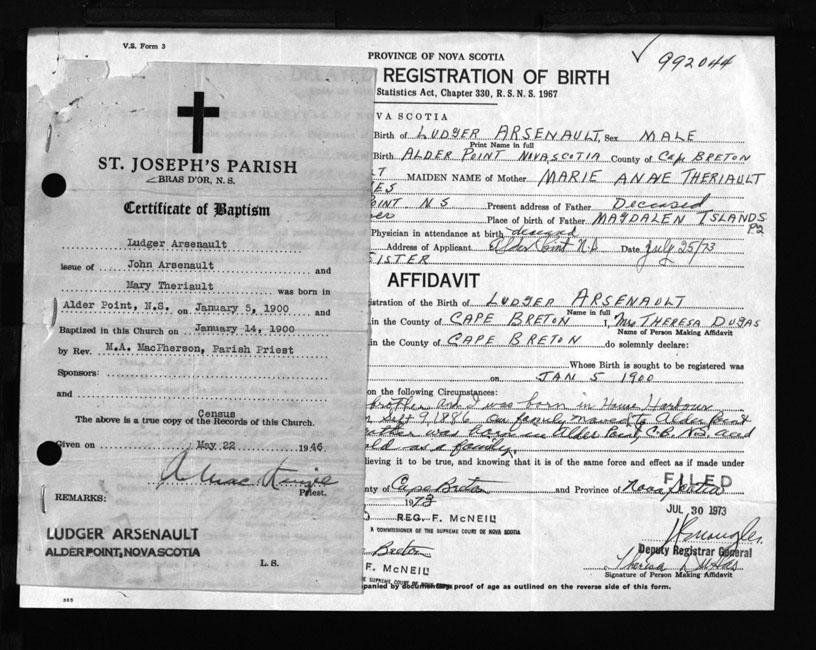 V.S. Form 3
PROVINCE OF NOVA SCOTIA
992044
REGISTRATION OF BIRTH
Statistics Act, Chapter 330, R.S.N.S. 1967
VA SCOTIA
Birth of LUDGER ARSENAULT, Sex MALE
Print Name in full
Birth ALDER POINT NOVA SCOTIA County of Cape BRETON
LT MAIDEN NAME of Mother MARIE ANNE THERIAULT
ES
OINT. N.S Present address of Father Deceased
Place of birth of Father MAGDALEN ISLANDS
P2
Physician in attendance at birth deceased
Address of Applicant Alder Point N.S Date July 25/73
SISTER
AFFIDAVIT
istration of the Birth of LUDGER ARSENAULT
Name in full
in the County of CAPE BRETON I, Mrs THERESA DUGAS
Name of Person Making Affidavit
in the County of CAPE BRETON do solemnly declare:
Whose Birth is sought to be registered was
on JAN 5 1900
on the following Circumstances:
brother and I was born in House Harbour
Sept 9, 1886 our family moved to Alder Point
was born in Alder Point, C.B. N.S. and
old as a family.
lieving it to be true, and knowing that it is of the same force and effect as if made under
nty of Cape Breton and Province of Nova Scotia
FILED
1973
JUL 30 1973
REG. F. McNEIL
A COMMISSIONER OF THE SUPREME COURT OF NOVA SCOTIA
Deputy Registrar General
Breton
F. McNEIL
Theresa Dugas
Signature of Person Making Affidavit
E SUPREME COURT OF NOVA SCOTIA
panied by documentary proof of age as outlined on the reverse side of this form.
ST. JOSEPH'S PARISH
BRAS D'OR, N. S.
Certificate of Baptism
Ludger Arsenault
issue of John Arsenault and
Mary Theriault was born in
Alder Point, N.S. on January 5, 1900 and
Baptized in this Church on January 14, 1900
by Rev. M.A. MacPherson, Parish Priest
Sponsors:
and
Census
The above is a true copy of the Records of this Church.
Given on May 22 1946
Priest.
REMARKS:
LUDGER ARSENAULT
ALDER POINT, NOVA SCOTIA
L. S.